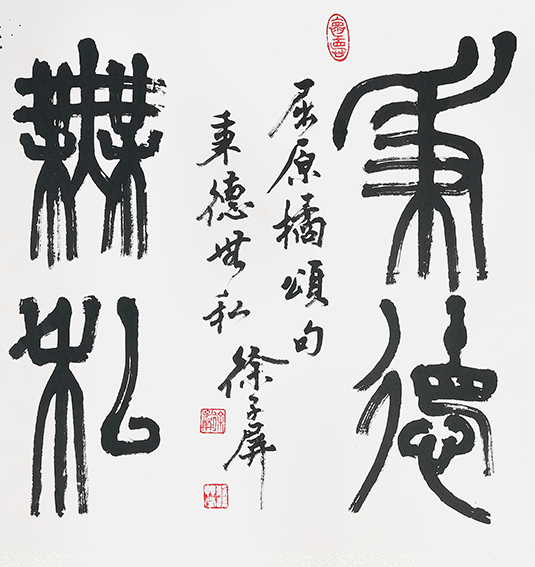 秉德
屈原橘頌句
秉德無私
徐子屏
無私